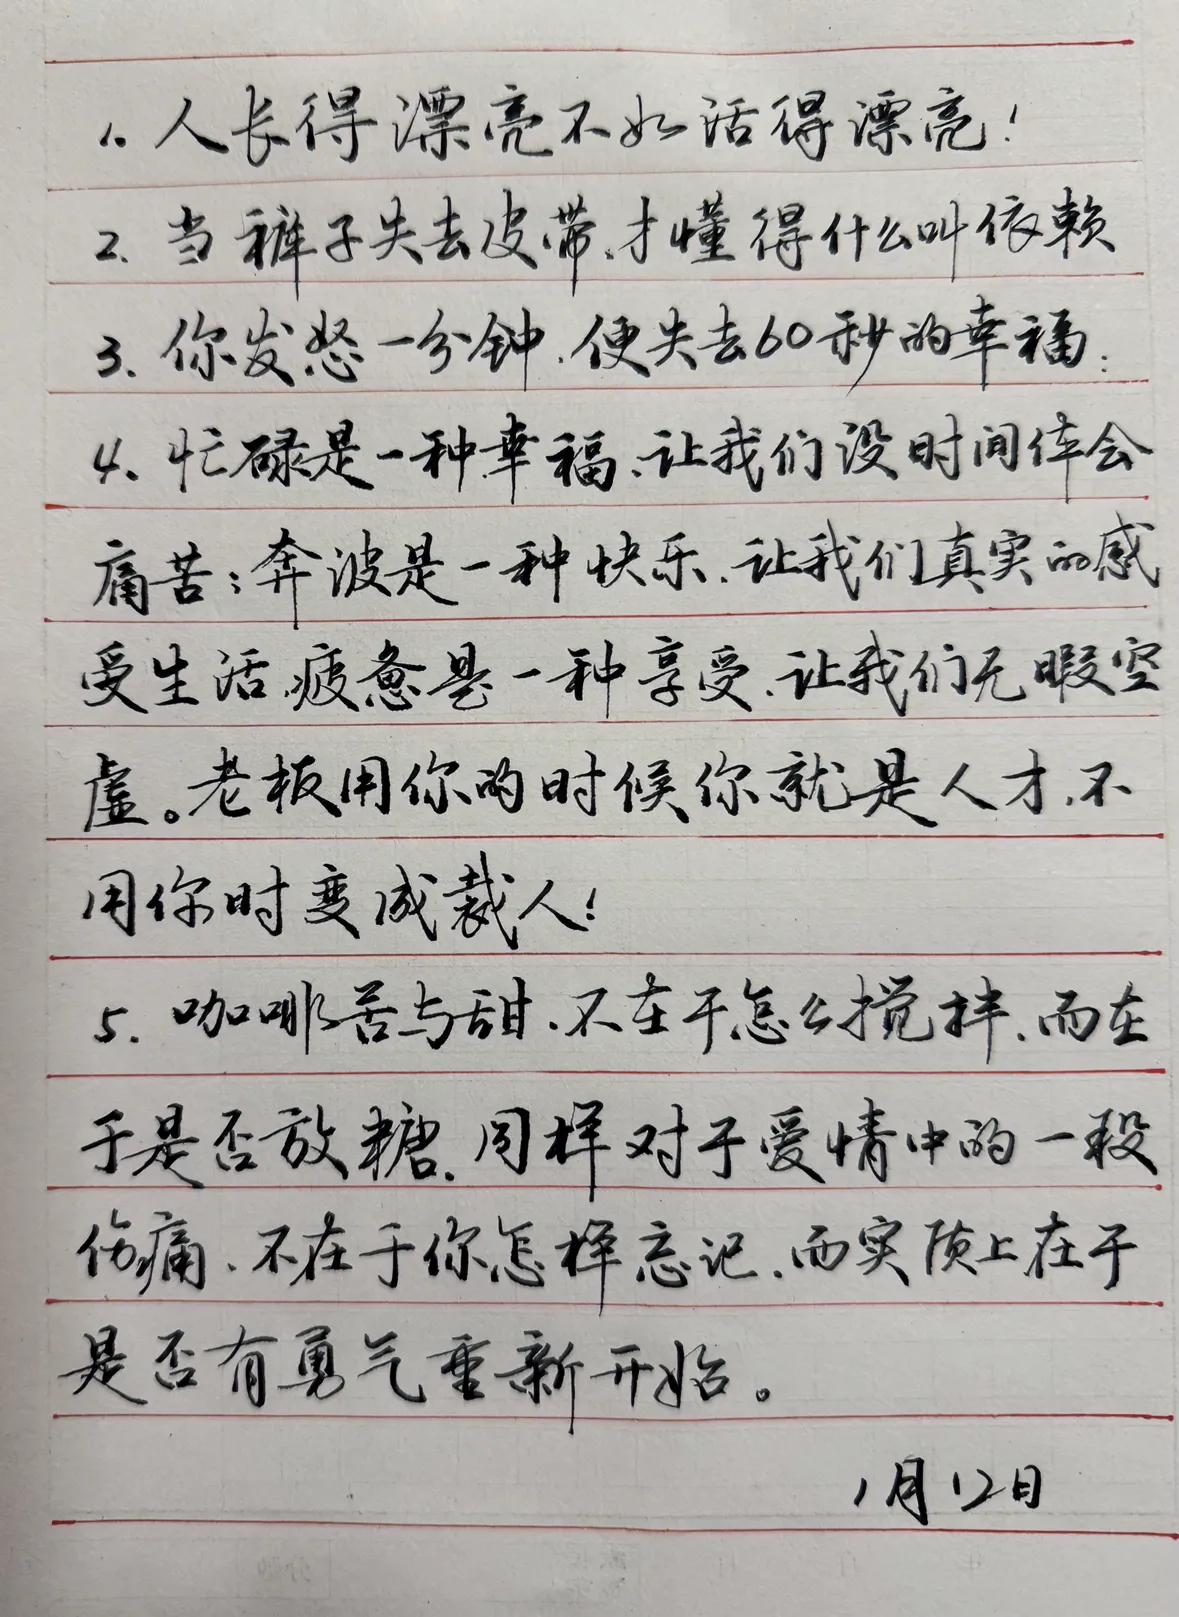 1. 人长得漂亮不如活得漂亮!
2. 当裤子失去皮带,才懂得什么叫依赖
3. 你发怒一分钟,便失去60秒的幸福.
4. 忙碌是一种幸福,让我们没时间体会
痛苦;奔波是一种快乐,让我们真实的感
受生活,疲惫是一种享受,让我们无暇空
虚。老板用你的时候你就是人才,不
用你时变成裁人!
5. 咖啡苦与甜,不在于怎么搅拌,而在
于是否放糖,同样对于爱情中的一段
伤痛,不在于你怎样忘记,而实质上在于
是否有勇气重新开始。
1月12日